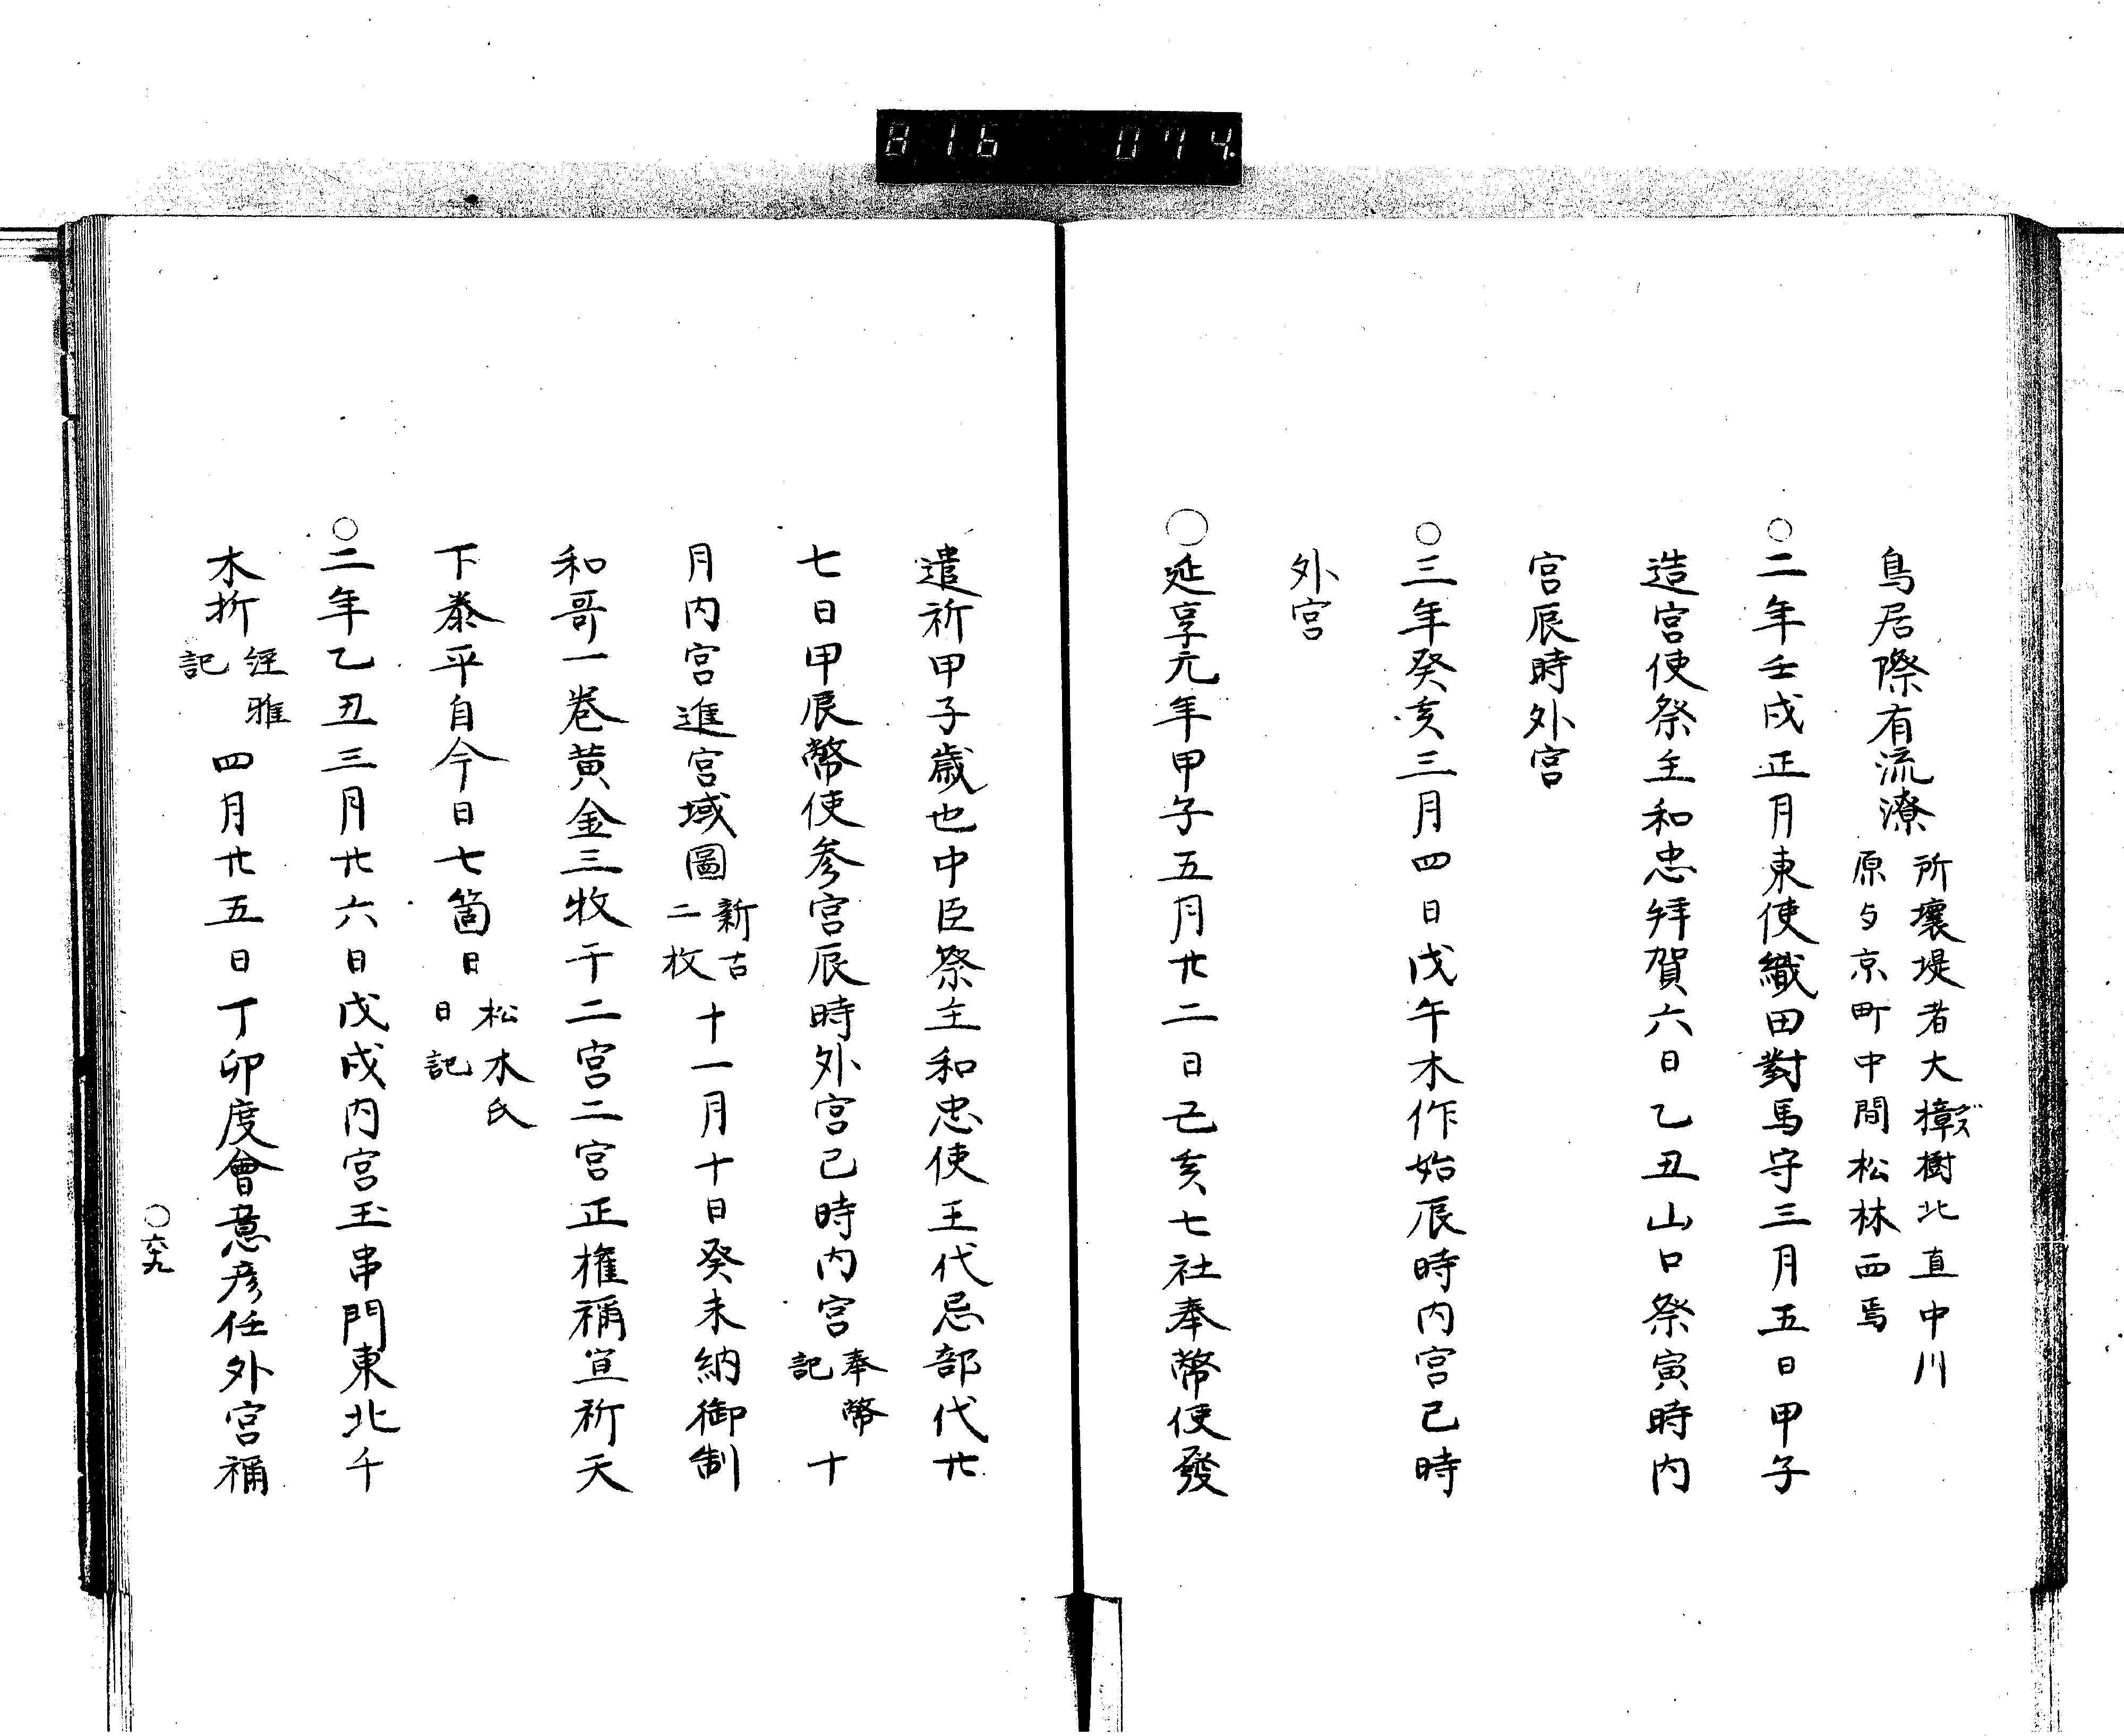 816 074
鳥居際有流潦所壞堤者大樟クス樹北直中川
原与京町中間松林西焉
○二年壬戌正月東使織田對馬守三月五日甲子
造宮使祭主和忠拜賀六日乙丑山口祭寅時内
宮辰時外宮
○三年癸亥三月四日戊午木作始辰時内宮已時
外宮
○延享元年甲子五月廿二日己亥七社奉幣使發
遣祈甲子歳也中臣祭主和忠使王代忌部代廿
七日甲辰幣使参宮辰時外宮已時内宮奉幣
記十
月内宮進宮域圖新古
二枚十一月十日癸未納御制
和哥一巻黄金三牧于二宮二宮正権祢宜祈天
下泰平自今日七箇日松木氏
日記
○二年乙丑三月廿六日戊戌内宮玉串門東北千
木折經雅
記四月廿五日丁卯度會意彦任外宮祢
○六九